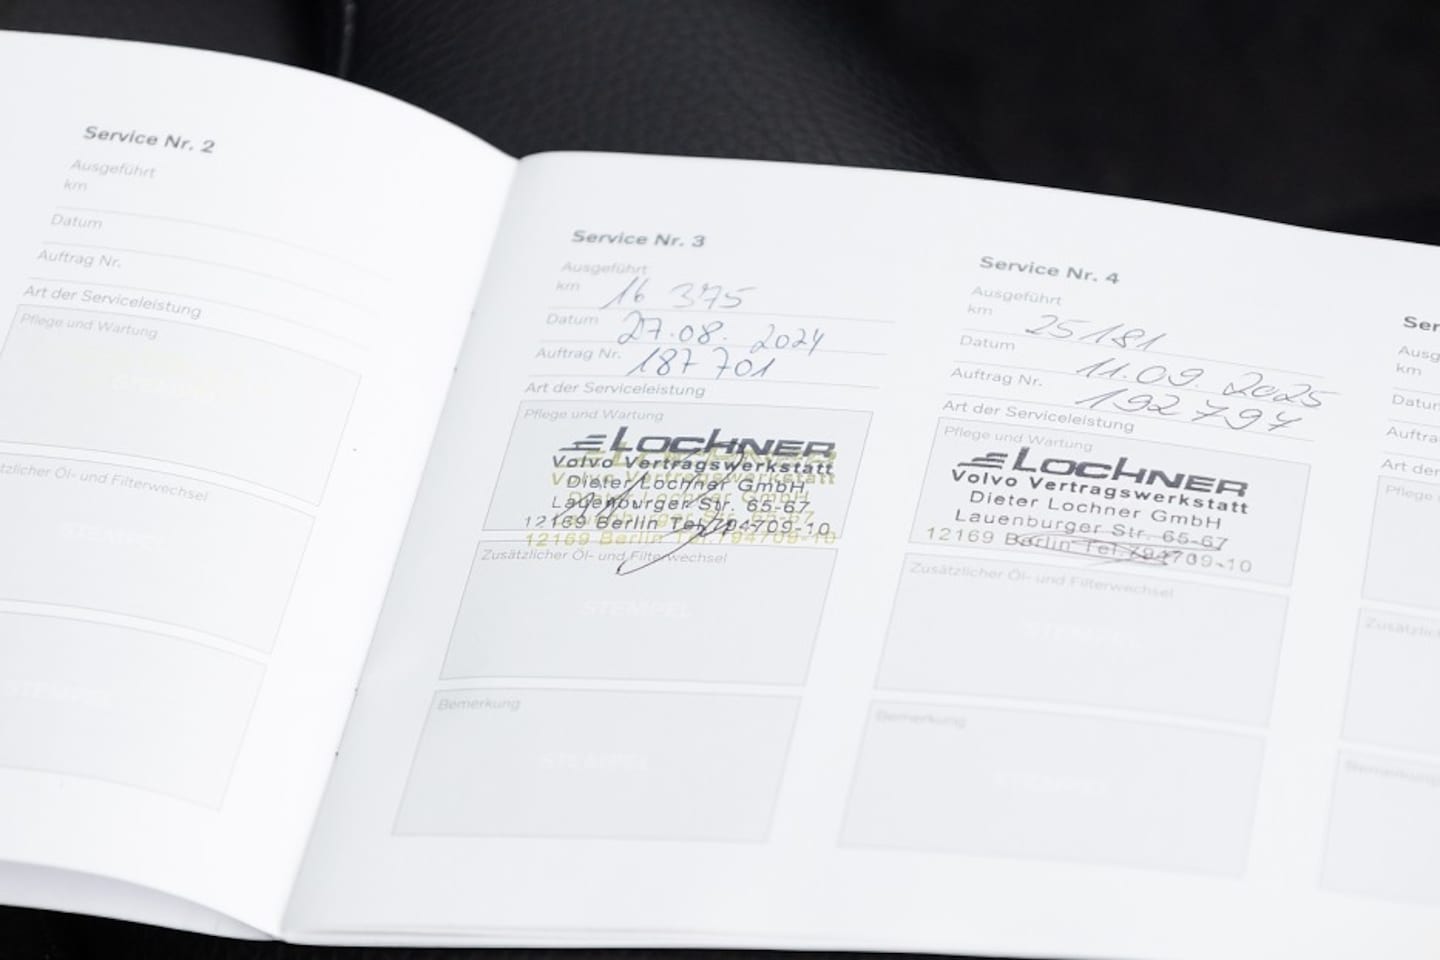 Service Nr. 2
Ausgeführt
km
Datum
Auftrag Nr.
Art der Serviceleistung
Pflege und Wartung
STEMPEL
tzlicher Öl- und Filterwechsel
STEMPEL
STEMPEL
Service Nr. 3
Ausgeführt
km 16 375
Datum 27.08. 2024
Auftrag Nr. 187 701
Art der Serviceleistung
Pflege und Wartung
LOCHNER
Volvo Vertragswerkstatt
Dieter Lochner GmbH
Lauenburger Str. 65-67
12169 Berlin Tel. 794709-10
Zusätzlicher Öl- und Filterwechsel
STEMPEL
Bemerkung
STEMPEL
Service Nr. 4
Ausgeführt
km 25181
Datum 11.09.2025
Auftrag Nr. 192794
Art der Serviceleistung
Pflege und Wartung
LOCHNER
Volvo Vertragswerkstatt
Dieter Lochner GmbH
Lauenburger Str. 65-67
12169 Berlin Tel. 794709-10
Zusätzlicher Öl- und Filterwechsel
STEMPEL
Bemerkung
STEMPEL
Ser
Ausg
km
Datum
Auftra
Art der
Pflege
Zusätzlic
Bemerkung